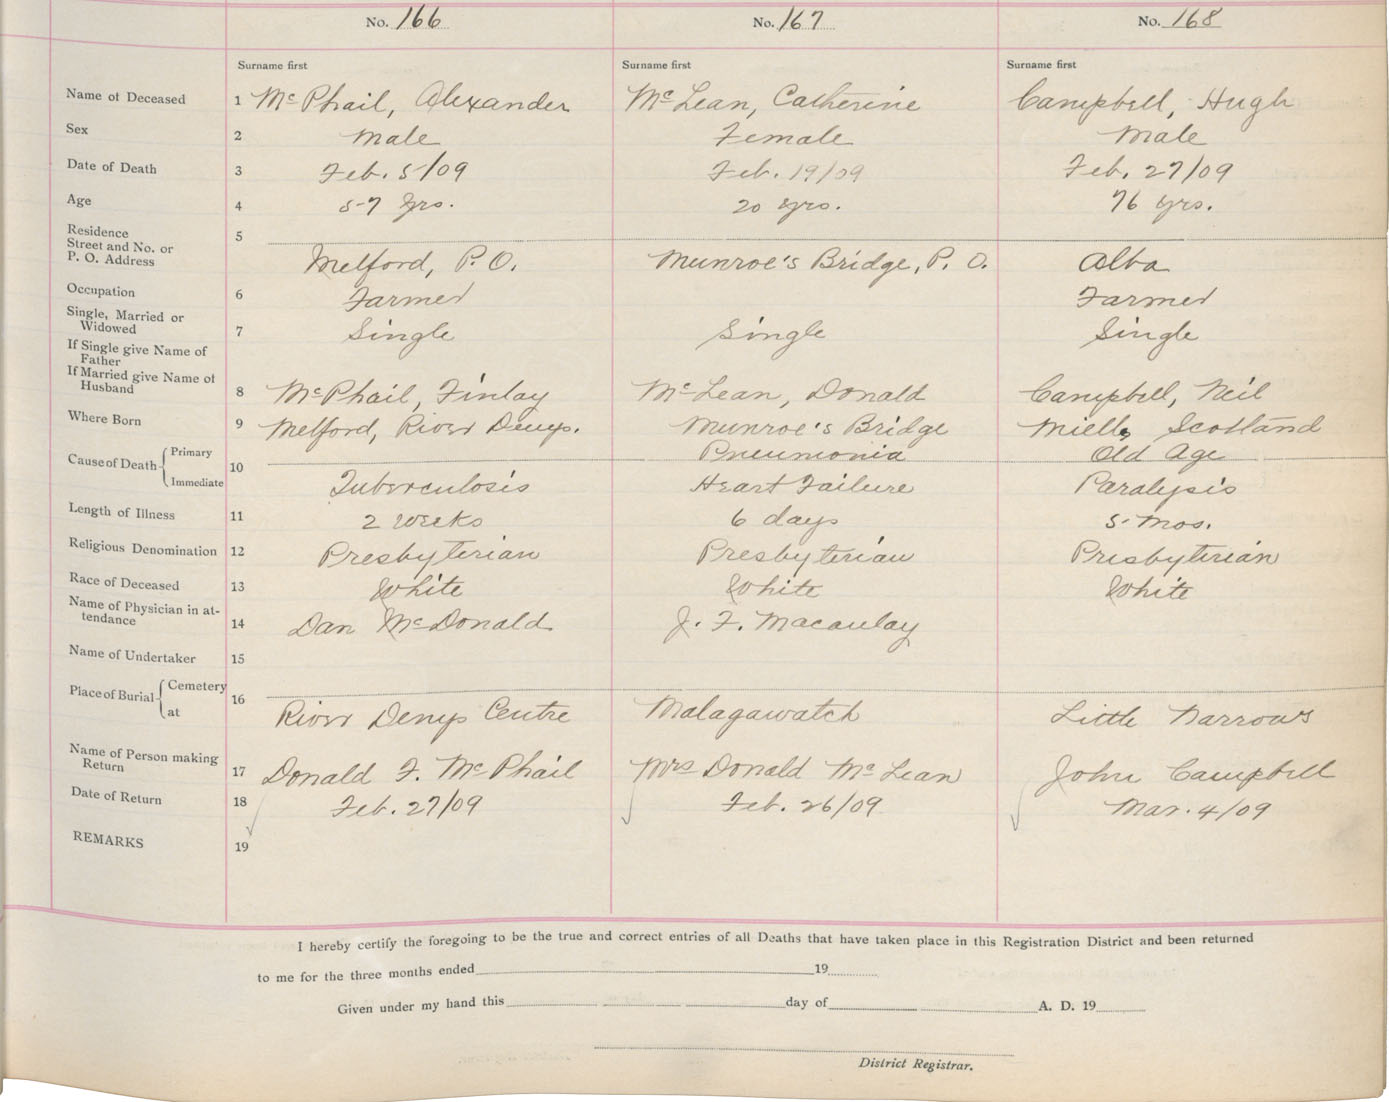 No. 166 No. 167 No. 168
Surname first Surname first Surname first
Name of Deceased 1 McPhail, Alexander McLean, Catherine Campbell, Hugh
Sex 2 Male Female Male
Date of Death 3 Feb. 5/09 Feb. 19/09 Feb. 27/09
Age 4 57 Yrs. 20 yrs. 76 yrs.
Residence 5
Street and No. or
P. O. Address Melford, P.O. Munroe's Bridge, P. O. Alba
Occupation 6 Farmer Farmer
Single, Married or
Widowed 7 Single Single Single
If Single give Name of
Father
If Married give Name of
Husband 8 McPhail, Finlay McLean, Donald Campbell, Neil
Where Born 9 Melford, River Denys. Munroe's Bridge Scotland
Cause of Death Primary 10 Pneumonia Old Age
Immediate Tuberculosis Heart Failure Paralysis
Length of Illness 11 2 weeks 6 days 5 mos.
Religious Denomination 12 Presbyterian Presbyterian Presbyterian
Race of Deceased 13 White White White
Name of Physician in at-
tendance 14 Dan McDonald J. F. Macaulay
Name of Undertaker 15
Place of Burial Cemetery 16
at River Denys Centre Malagawatch Little Narrows
Name of Person making
Return 17 Donald F. McPhail Mrs Donald McLean John Campbell
Date of Return 18 Feb. 27/09 Feb. 26/09 Mar. 4/09
REMARKS 19
I hereby certify the foregoing to be the true and correct entries of all Deaths that have taken place in this Registration District and been returned
to me for the three months ended 19
Given under my hand this day of A. D. 19
District Registrar.